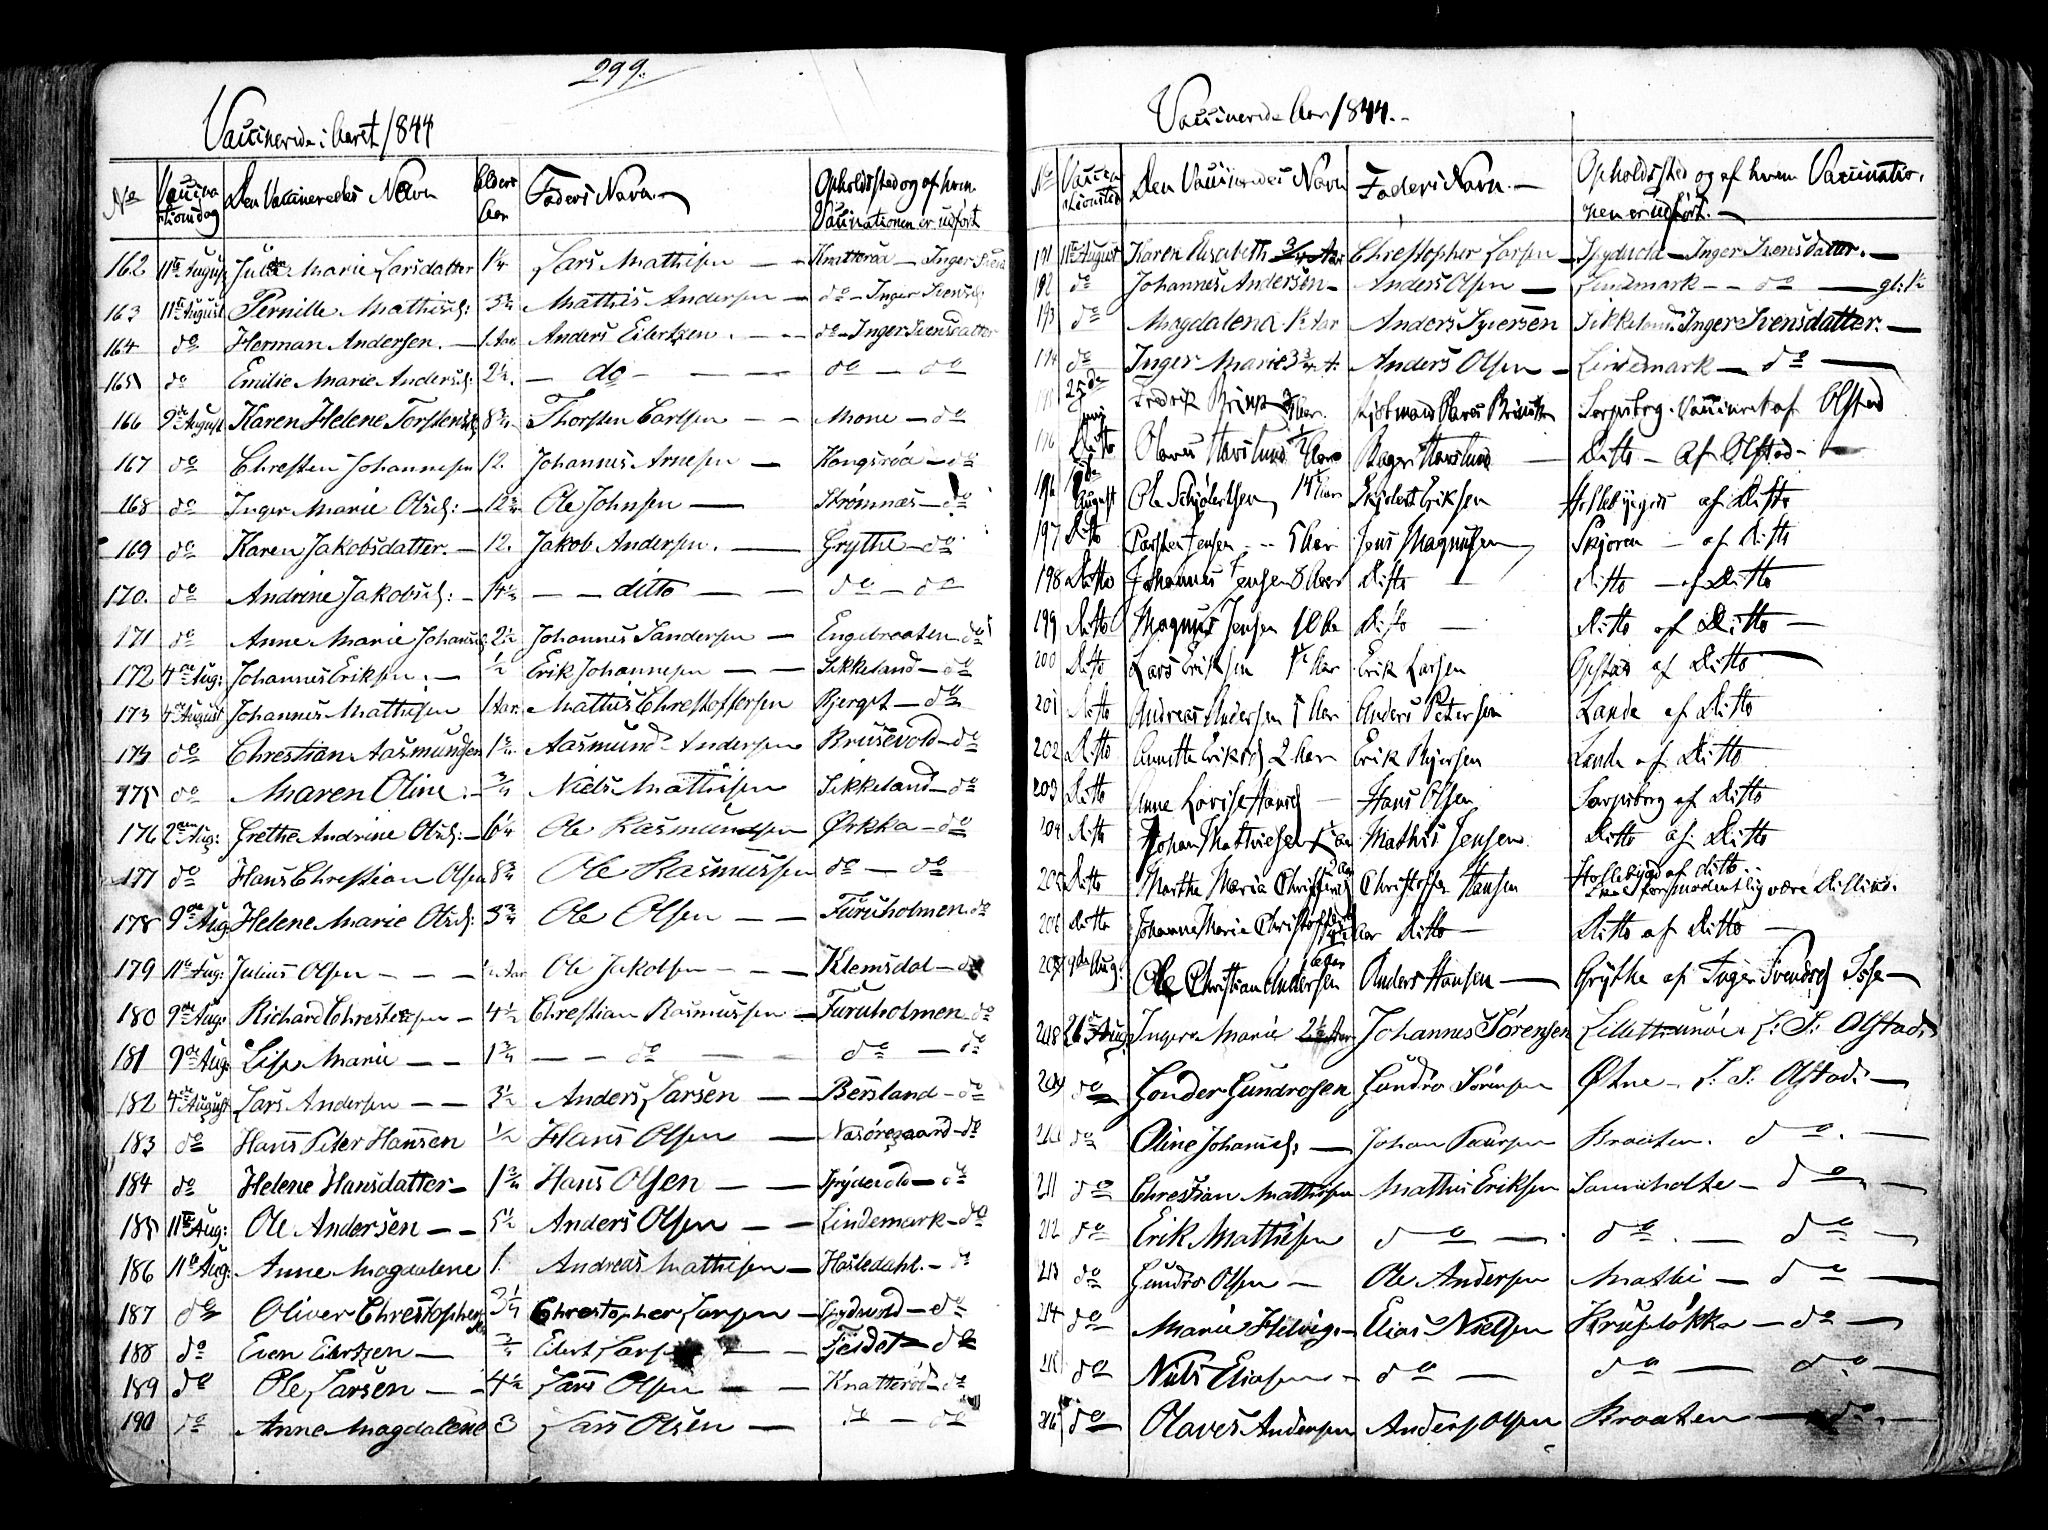 299.
Vaccinerede i Aaret 1844
No Vaccina tionsdag Den Vaccineredes Navn Alders Aar Faders Navn Opholdssted og af hvem Vaccinationen er udført
162 11te August Marie Larsdatter 1¼ Lars Mathisen — Knatterød — Inger
163 11te August Pernille Mathisd: 3¾ Mathis Andersen — do — Inger Svensd:
164 do Herman Andersen. — 1 Aar Anders Eilertsen. — do — Inger Svensdatter
165 do Emilie Marie Andersd: 2½. — do — do — do
166 9de August Karen Helene Torstensd. 8¾ Thorsten Carlsen — Mone — do
167 do Chresten Johannesen 12. Johannes Arnesen — Kongsrøa — do
168 do Inger Marie Olsd: — 12¾ Ole Johnsen — Strømnæs — do
169 do Karen Jakobsdatter. — 12. Jakob Andersen. — Grythe — do
170. do Andrine Jakobsd: — 14½ — ditto — do — do
171 do Anne Marie Johannes 2½ Johannes Sandersen — Engebraaten — do
172 4de Aug: Johannes Eriksen. — ½ Erik Johannesen — Sikkeland — do
173 4de August Johannes Mathisen 1 Aar. Mathis Chrestoffersen Bjerget — do
174 do Chrestian Aasmundsen 1¾ Aasmund Andersen Brusevold — do
175 do Maren Oline. — ¾ Niels Mathisen Sikkeland — do
176 2den Aug: Grethe Andrine Olsd: — 6¼ Ole Rasmussen Ørkka — do
177 do Hans Chrestian Olsen 8¾ Ole Rasmussen do — do
178 9de Aug Helene Marie Olsd: 3¾ Ole Olsen — Furuholmen do
179 11te Aug: Julius Olsen — Aar Ole Jakobsen — Klemsdal — do
180 9de Aug: Richard Chrestensen — 4½ Chrestian Rasmussen — Furuholmen do
181 9de Aug: Lise Marie — 1¾ — do — do — do
182 4de August Lars Andersen — 3½ Anders Larsen — Bersland — do
183 do Hans Peter Hansen ½ Hans Olsen — Næsøregaard — do
184 do Helene Hansdatter — 1¾ Hans Olsen — Frydevold — do
185 11te Aug: Ole Andersen — 5½ Anders Olsen — Lindemark — do
186 11te Aug: Anne Magdalene 1. Andreas Mathisen — Hasledahl. — do
187 do Oliver Chrestophersen 3¼ Chrestopher Larsen — — do
188 do Even Eilertsen — ¾ Eilert — Feldet — do
189 do Ole Larsen — 4½ Lars Olsen — Knatterød — do
190 do Anne Magdalene 3 Lars Olsen — do — do
Vaccinerede Aar 1844. —
No Vaccinationsdag Den Vaccineredes Navn Faders Navn. — Opholdssted og af hvem Vaccinationen er udført. —
191 11te August Karen Elisabeth ¾ Aar Chrestopher Larsen — — Inger Svensdatter. —
192 do Johannes Andersen — Anders Olsen — Lindemark — do —
193 do Magdalena 1½ Aar Anders Syversen Sikkeland Inger Svensdatter. —
194 do Inger Marie 3¾ A. Anders Olsen — Lindemark — do —
25de Juni Fredrik Sarpsborg. Vaccineret af Olstad
Ditto Olaves Havslund Havslund — Ditto — af Olstad —
196 August Ole Eriksen af Ditto
197 Ditto Jensen — 5 Aar Jens Magnusen Skjoren — af Ditto
198 Ditto Johannes Jensen 8 Aar Ditto — Ditto — af Ditto
199 Ditto Magnus Jensen 10 Aa Ditto — Ditto af Ditto —
200 Ditto Lars Eriksen Aar Erik Larsen Opstad af Ditto
201 Ditto Andreas Andersen 5 Aar Anders Petersen Lande af Ditto
202 Ditto Annette Eriksd 2 Aar Erik Lande af Ditto
203 Ditto Anne Lovise Hansd — Hans Olsen Sarpsborg af Ditto
204 Ditto Johan Mathiesen Mathis Jensen Ditto af Ditto
205 Ditto Marthe Maria Christoffer Hansen af ditto
være
206 Ditto Johanne Marie Aar Ditto — Ditto af Ditto —
9de Aug: Ole Christian Andersen Anders Hansen — Grythe af Inger Svendsd
208 26 Aug: Inger Marie 2½ Aar Johannes Sørensen Olstad.
209 do Gunder Gundrosen Gundro Sørensen Østne — Olstad. —
210 do Oline Johansd: — Johan Braaten. do. —
211 do Chrestian Mathisen Mathis Eriksen — do —
212 do Erik Mathisen do — do. — do —
213 do Gundro Olsen — Ole Andersen — do —
214 do Marie Helvig. — Elias Nielsen Krusløkka — do —
215 do Niels Eliasen — do — do — do —
216 do Olaves Andersen Anders Olsen Braaten — do. —